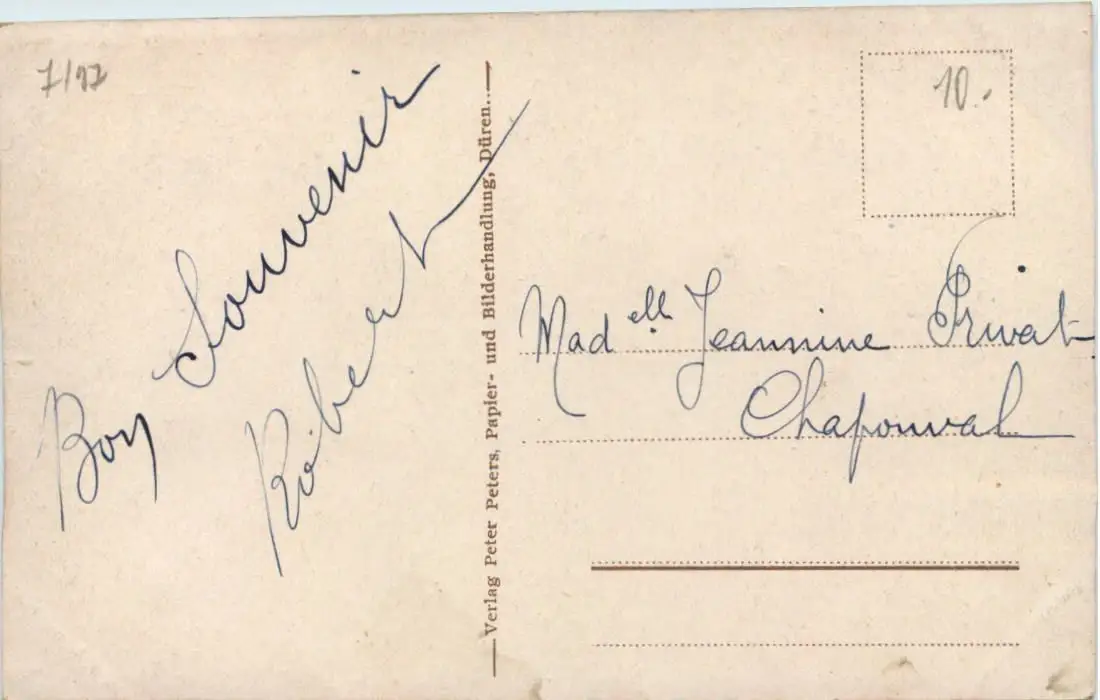 7/97
10.
Bon Souvenir
Robert
Verlag Peter Peters, Papier- und Bilderhandlung, Düren.
Mad elle Jeannine Privat
Chaponval